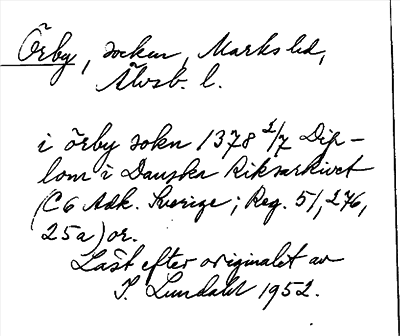 Örby, socken, Marks hd,
Älvsb. l.
i örby sokn 1378 2/7 Dip-
lom i Danska Riksarkivet
(C6 Adk. Sverige; Reg. 51, 276,
25a) or.
Läst efter originalet av
I. Lundahl 1952.